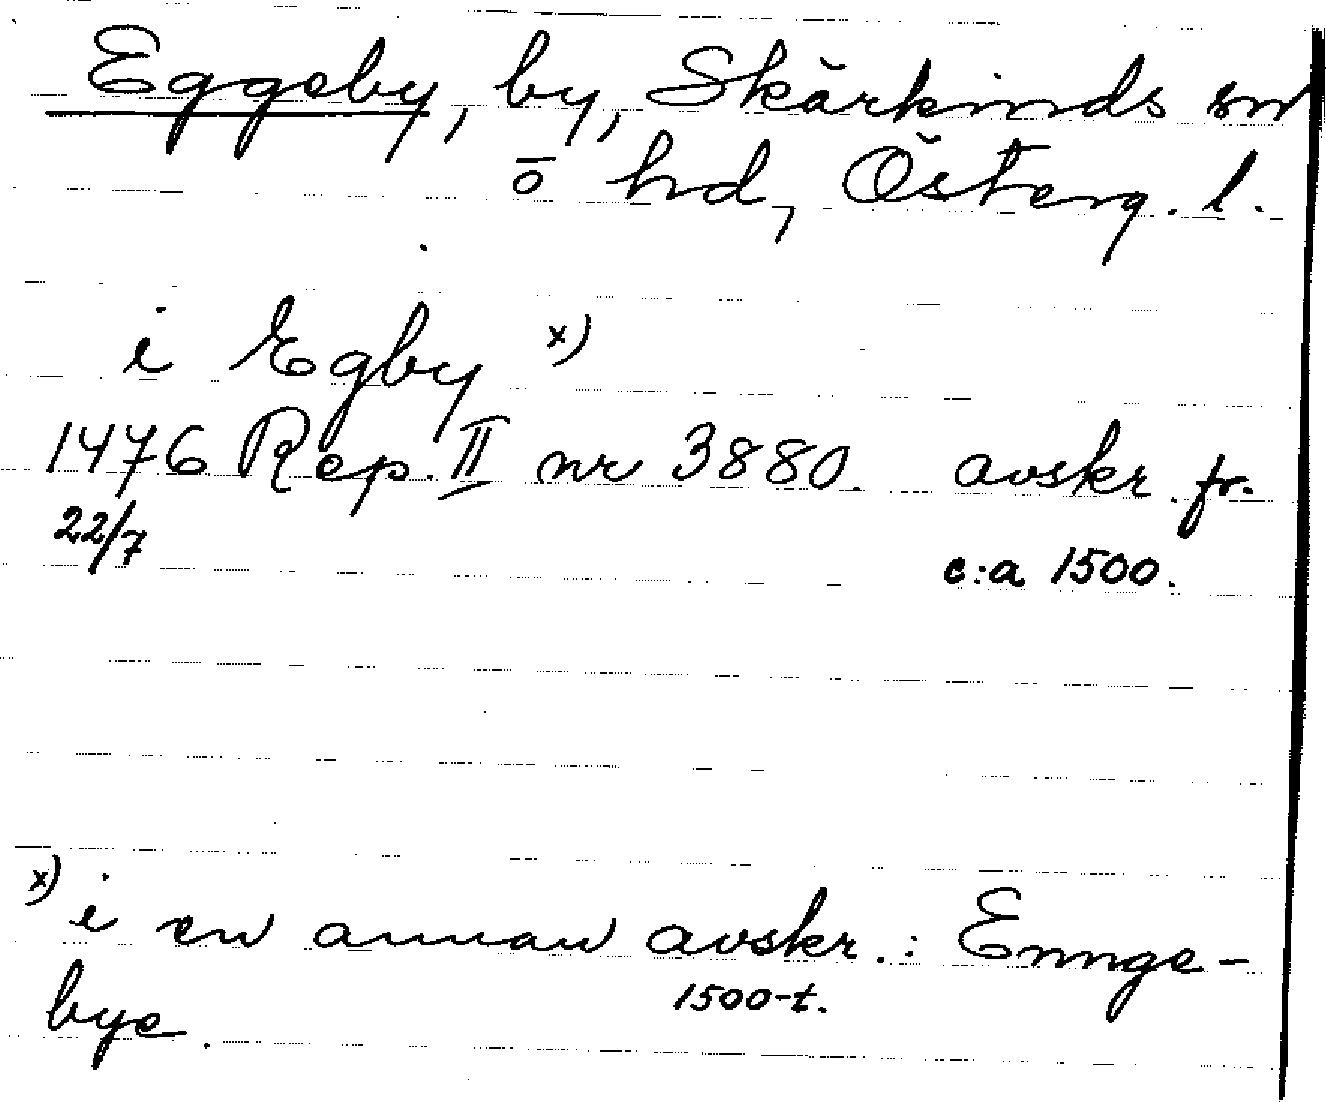 Eggeby, by, Skärkinds sn
ō hd, Österg. l.
i Egby x)
1476 Rep. II nr 3880. avskr. fr.
22/7 c:a 1500.
x) i en annan avskr.: Ennge-
1500-t.
bye.